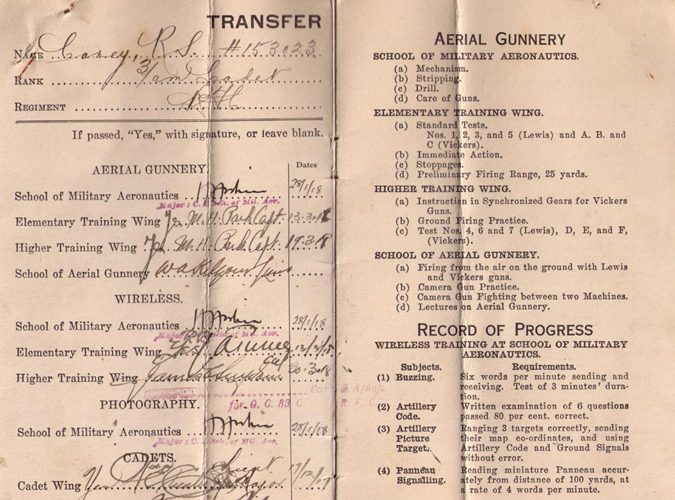 TRANSFER
NAME Carey, R. S. #153023
RANK 3/am Cadet
REGIMENT RFC
If passed, "Yes," with signature, or leave blank.
AERIAL GUNNERY. Dates
School of Military Aeronautics 29/1/18
Elementary Training Wing M. H. Park Capt.
Higher Training Wing M. H. Park Capt. 19.3.18
School of Aerial Gunnery
WIRELESS.
School of Military Aeronautics 29/1/18
Elementary Training Wing
Higher Training Wing
PHOTOGRAPHY. for O. C.
School of Military Aeronautics 29/1/18
CADETS.
Cadet Wing
AERIAL GUNNERY
SCHOOL OF MILITARY AERONAUTICS.
(a) Mechanism.
(b) Stripping.
(c) Drill.
(d) Care of Guns.
ELEMENTARY TRAINING WING.
(a) Standard Tests.
Nos. 1, 2, 3, and 5 (Lewis) and A. B. and
C (Vickers).
(b) Immediate Action.
(c) Stoppages.
(d) Preliminary Firing Range, 25 yards.
HIGHER TRAINING WING.
(a) Instruction in Synchronized Gears for Vickers
Guns.
(b) Ground Firing Practice.
(c) Test Nos. 4, 6 and 7 (Lewis), D, E, and F,
(Vickers).
SCHOOL OF AERIAL GUNNERY.
(a) Firing from the air on the ground with Lewis
and Vickers guns.
(b) Camera Gun Practice.
(c) Camera Gun Fighting between two Machines.
(d) Lectures on Aerial Gunnery.
RECORD OF PROGRESS
WIRELESS TRAINING AT SCHOOL OF MILITARY
AERONAUTICS.
Subjects. Requirements.
(1) Buzzing. Six words per minute sending and
receiving. Test of 3 minutes' dura-
tion.
(2) Artillery Written examination of 6 questions
Code. passed 80 per cent. correct.
(3) Artillery Ranging 3 targets correctly, sending
Picture their map co-ordinates, and using
Target. Artillery Code and Ground Signals
without error.
(4) Panneau Reading miniature Panneau accur-
Signalling. ately from distance of 100 yards, at
a rate of 4 words per minute.